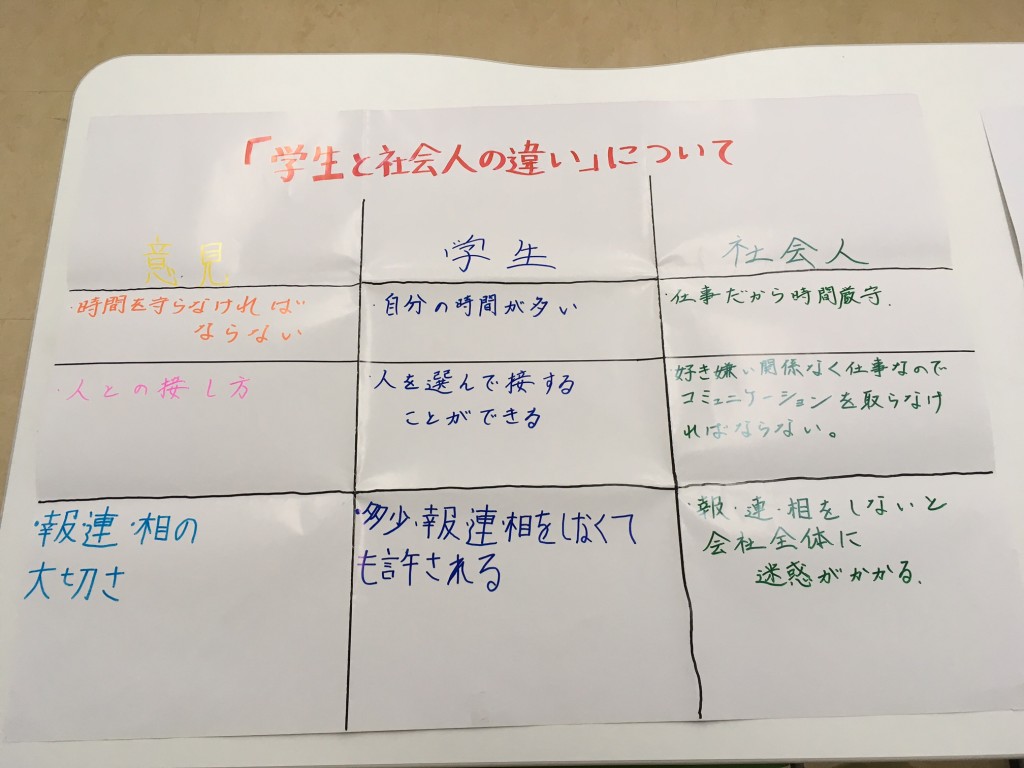 「学生と社会人の違い」について
意見
学生
社会人
・時間を守らなければ
ならない
・自分の時間が多い
・仕事だから時間厳守.
・人との接し方
人を選んで接する
ことができる
好き嫌い関係なく仕事なので
コミュニケーションを取らなけ
ればならない。
・報連・相の
大切さ
・多少・報・連・相をしなくて
も許される
・報・連・相をしないと
会社全体に
迷惑がかかる.